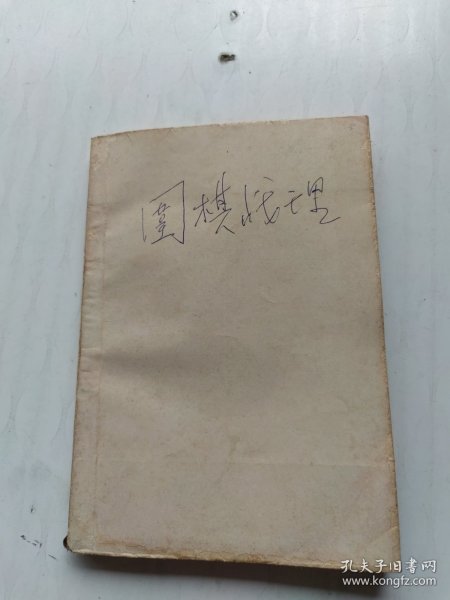 围棋战理
孔夫子旧书网
www.kongfz.com